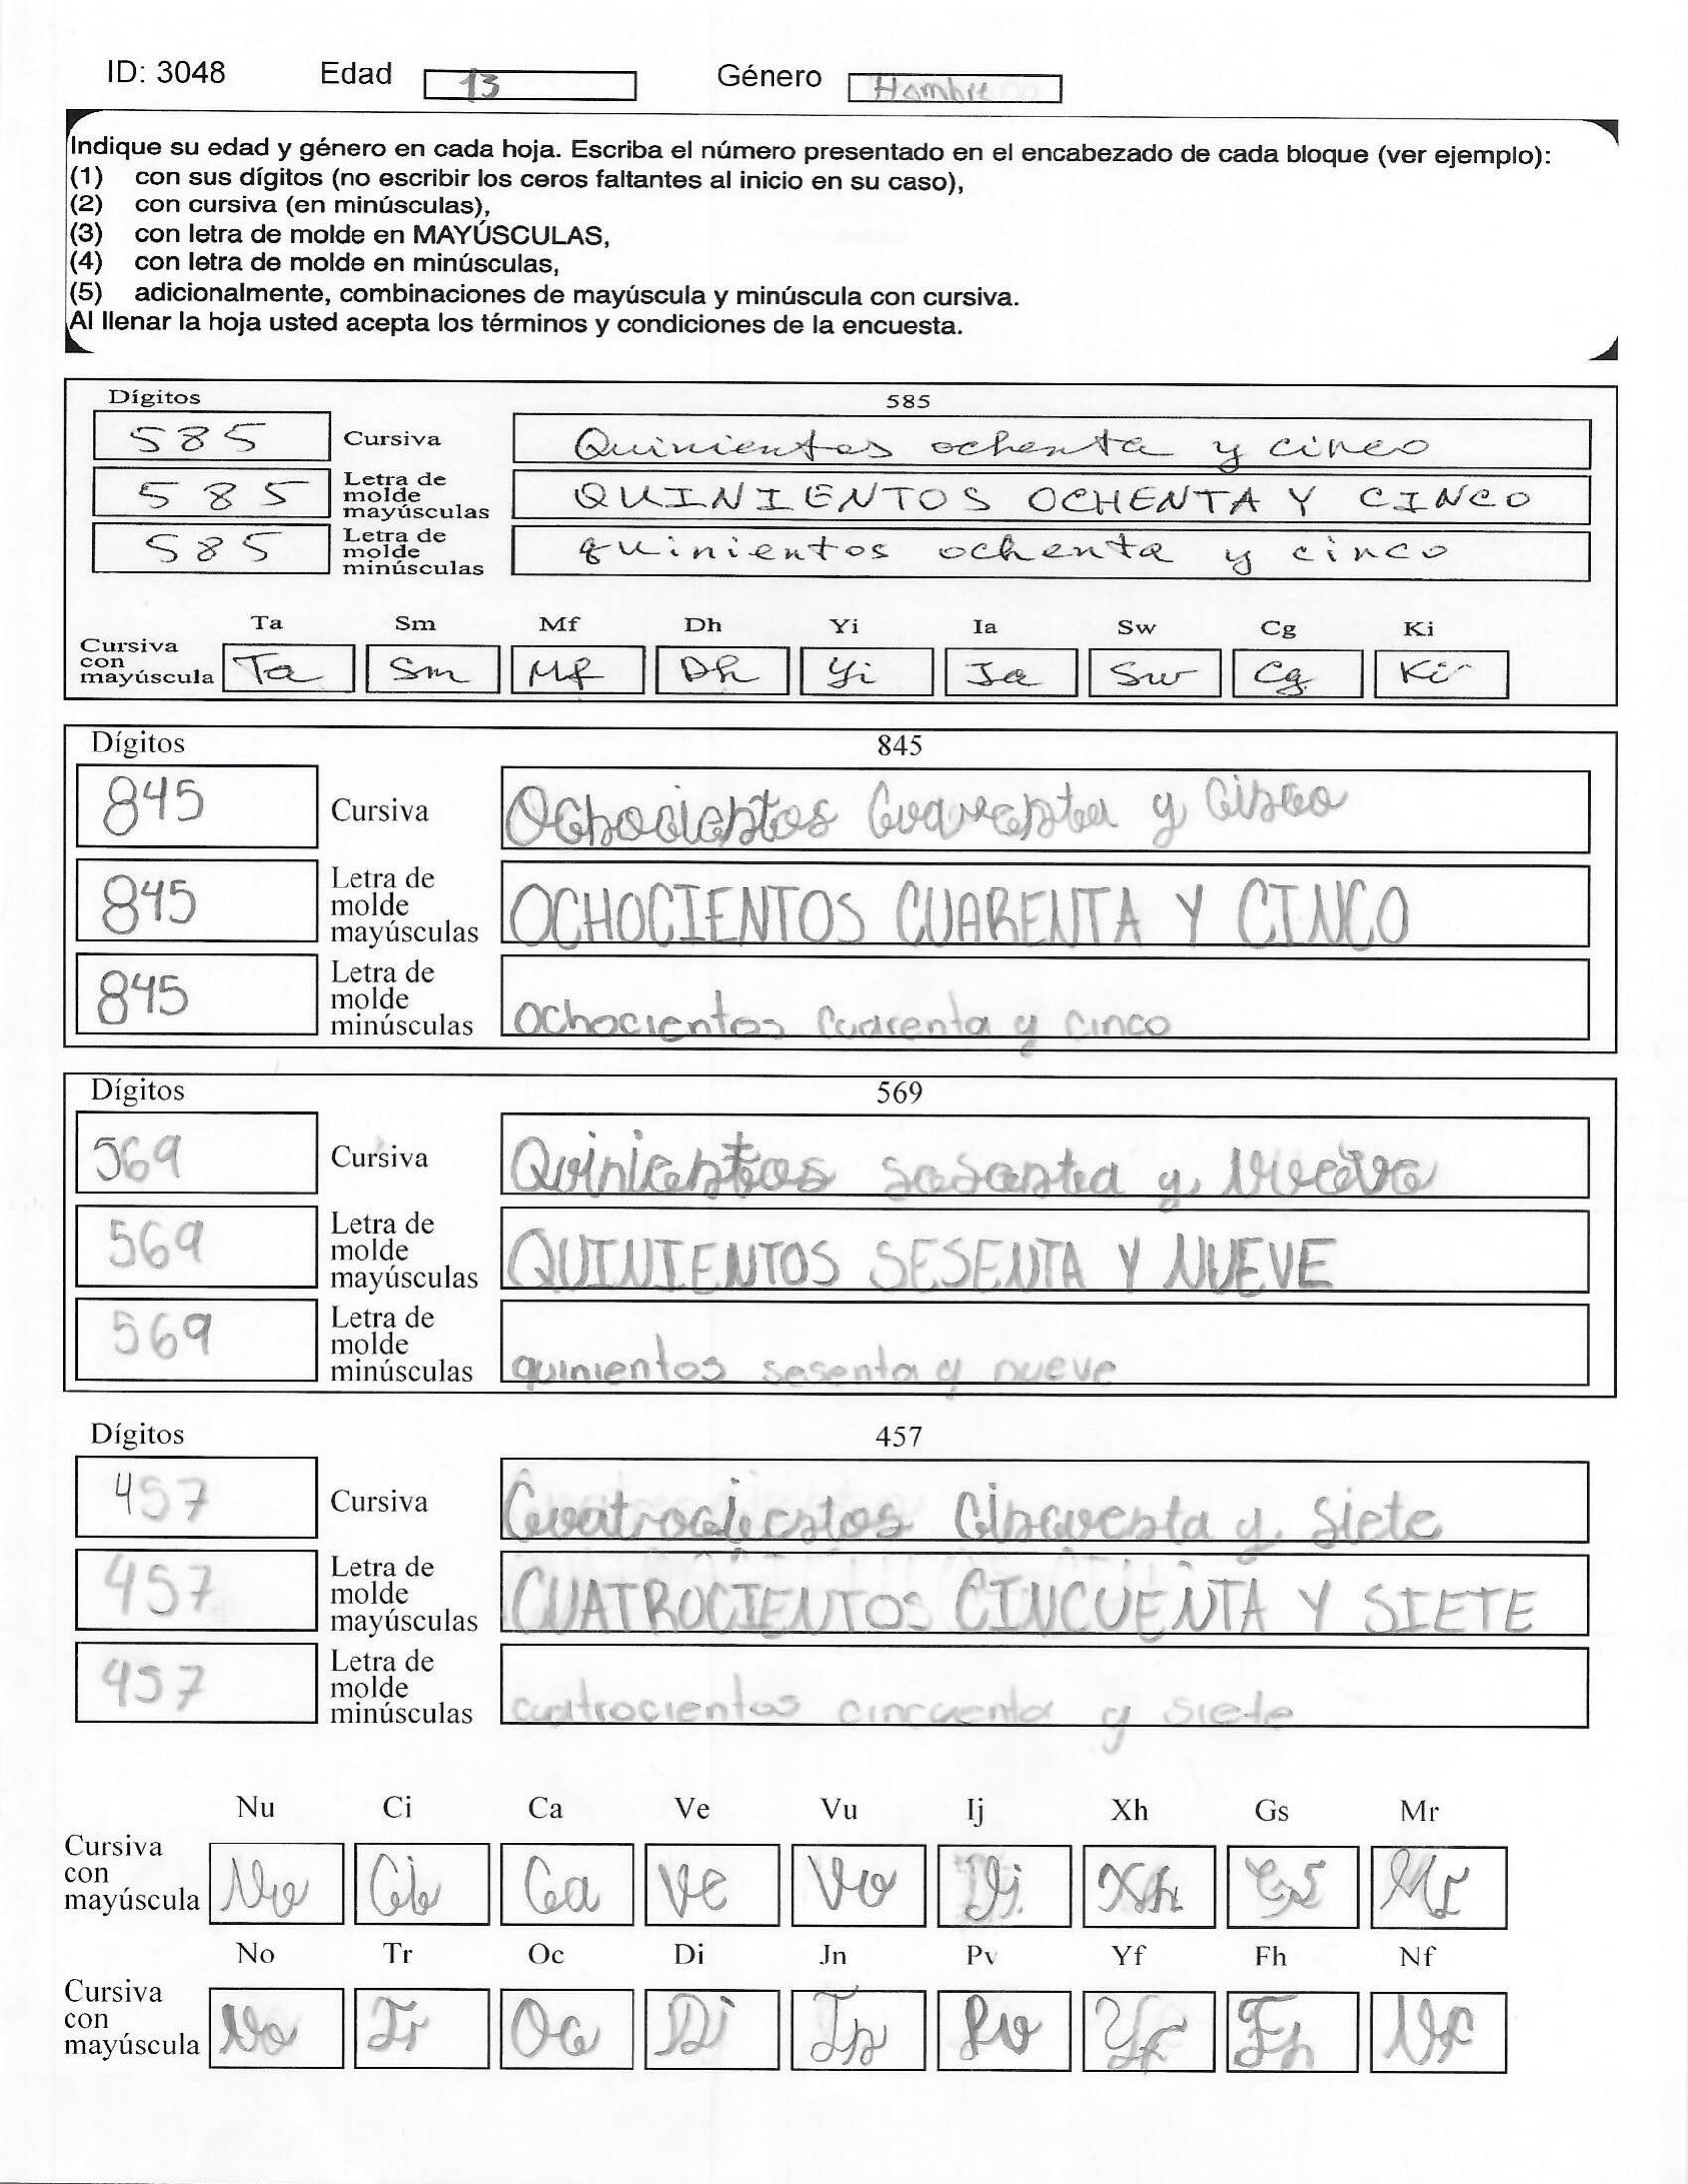 ID: 3048 Edad 13 Género Hombre
Indique su edad y género en cada hoja. Escriba el número presentado en el encabezado de cada bloque (ver ejemplo):
(1) con sus dígitos (no escribir los ceros faltantes al inicio en su caso),
(2) con cursiva (en minúsculas),
(3) con letra de molde en MAYÚSCULAS,
(4) con letra de molde en minúsculas,
(5) adicionalmente, combinaciones de mayúscula y minúscula con cursiva.
Al llenar la hoja usted acepta los términos y condiciones de la encuesta.
Dígitos 585
585 Cursiva Quinientos ochenta y cinco
585 Letra de molde mayúsculas QUINIENTOS OCHENTA Y CINCO
585 Letra de molde minúsculas quinientos ochenta y cinco
Ta Sm Mf Dh Yi Ia Sw Cg Ki
Cursiva con mayúscula Ta Sm Mf Dh Yi Ia Sw Cg Ki
Dígitos 845
845 Cursiva Ochocientos Cuarenta y Cinco
845 Letra de molde mayúsculas OCHOCIENTOS CUARENTA Y CINCO
845 Letra de molde minúsculas ochocientos cuarenta y cinco
Dígitos 569
569 Cursiva Quinientos sesenta y nueve
569 Letra de molde mayúsculas QUINIENTOS SESENTA Y NUEVE
569 Letra de molde minúsculas quinientos sesenta y nueve
Dígitos 457
457 Cursiva Cuatrocientos Cincuenta y Siete
457 Letra de molde mayúsculas CUATROCIENTOS CINCUENTA Y SIETE
457 Letra de molde minúsculas cuatrocientos cincuenta y siete
Nu Ci Ca Ve Vu Ij Xh Gs Mr
Cursiva con mayúscula Nu Ci Ca Ve Vu Ij Xh Gs Mr
No Tr Oc Di Jn Pv Yf Fh Nf
Cursiva con mayúscula No Tr Oc Di Jn Pv Yf Fh Nf